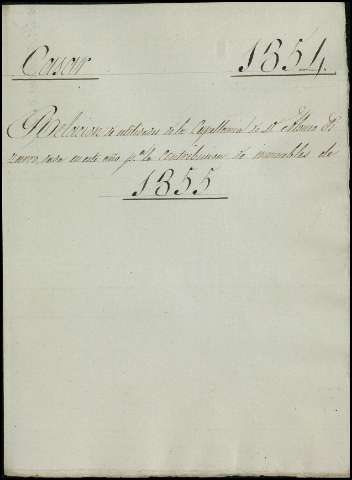 Casar 1854.
Relacion de utilidades de la Capellania de Dn. Alonso Pi
zarro, dada en este año pa. la Contribucion de inmuebles de
1855